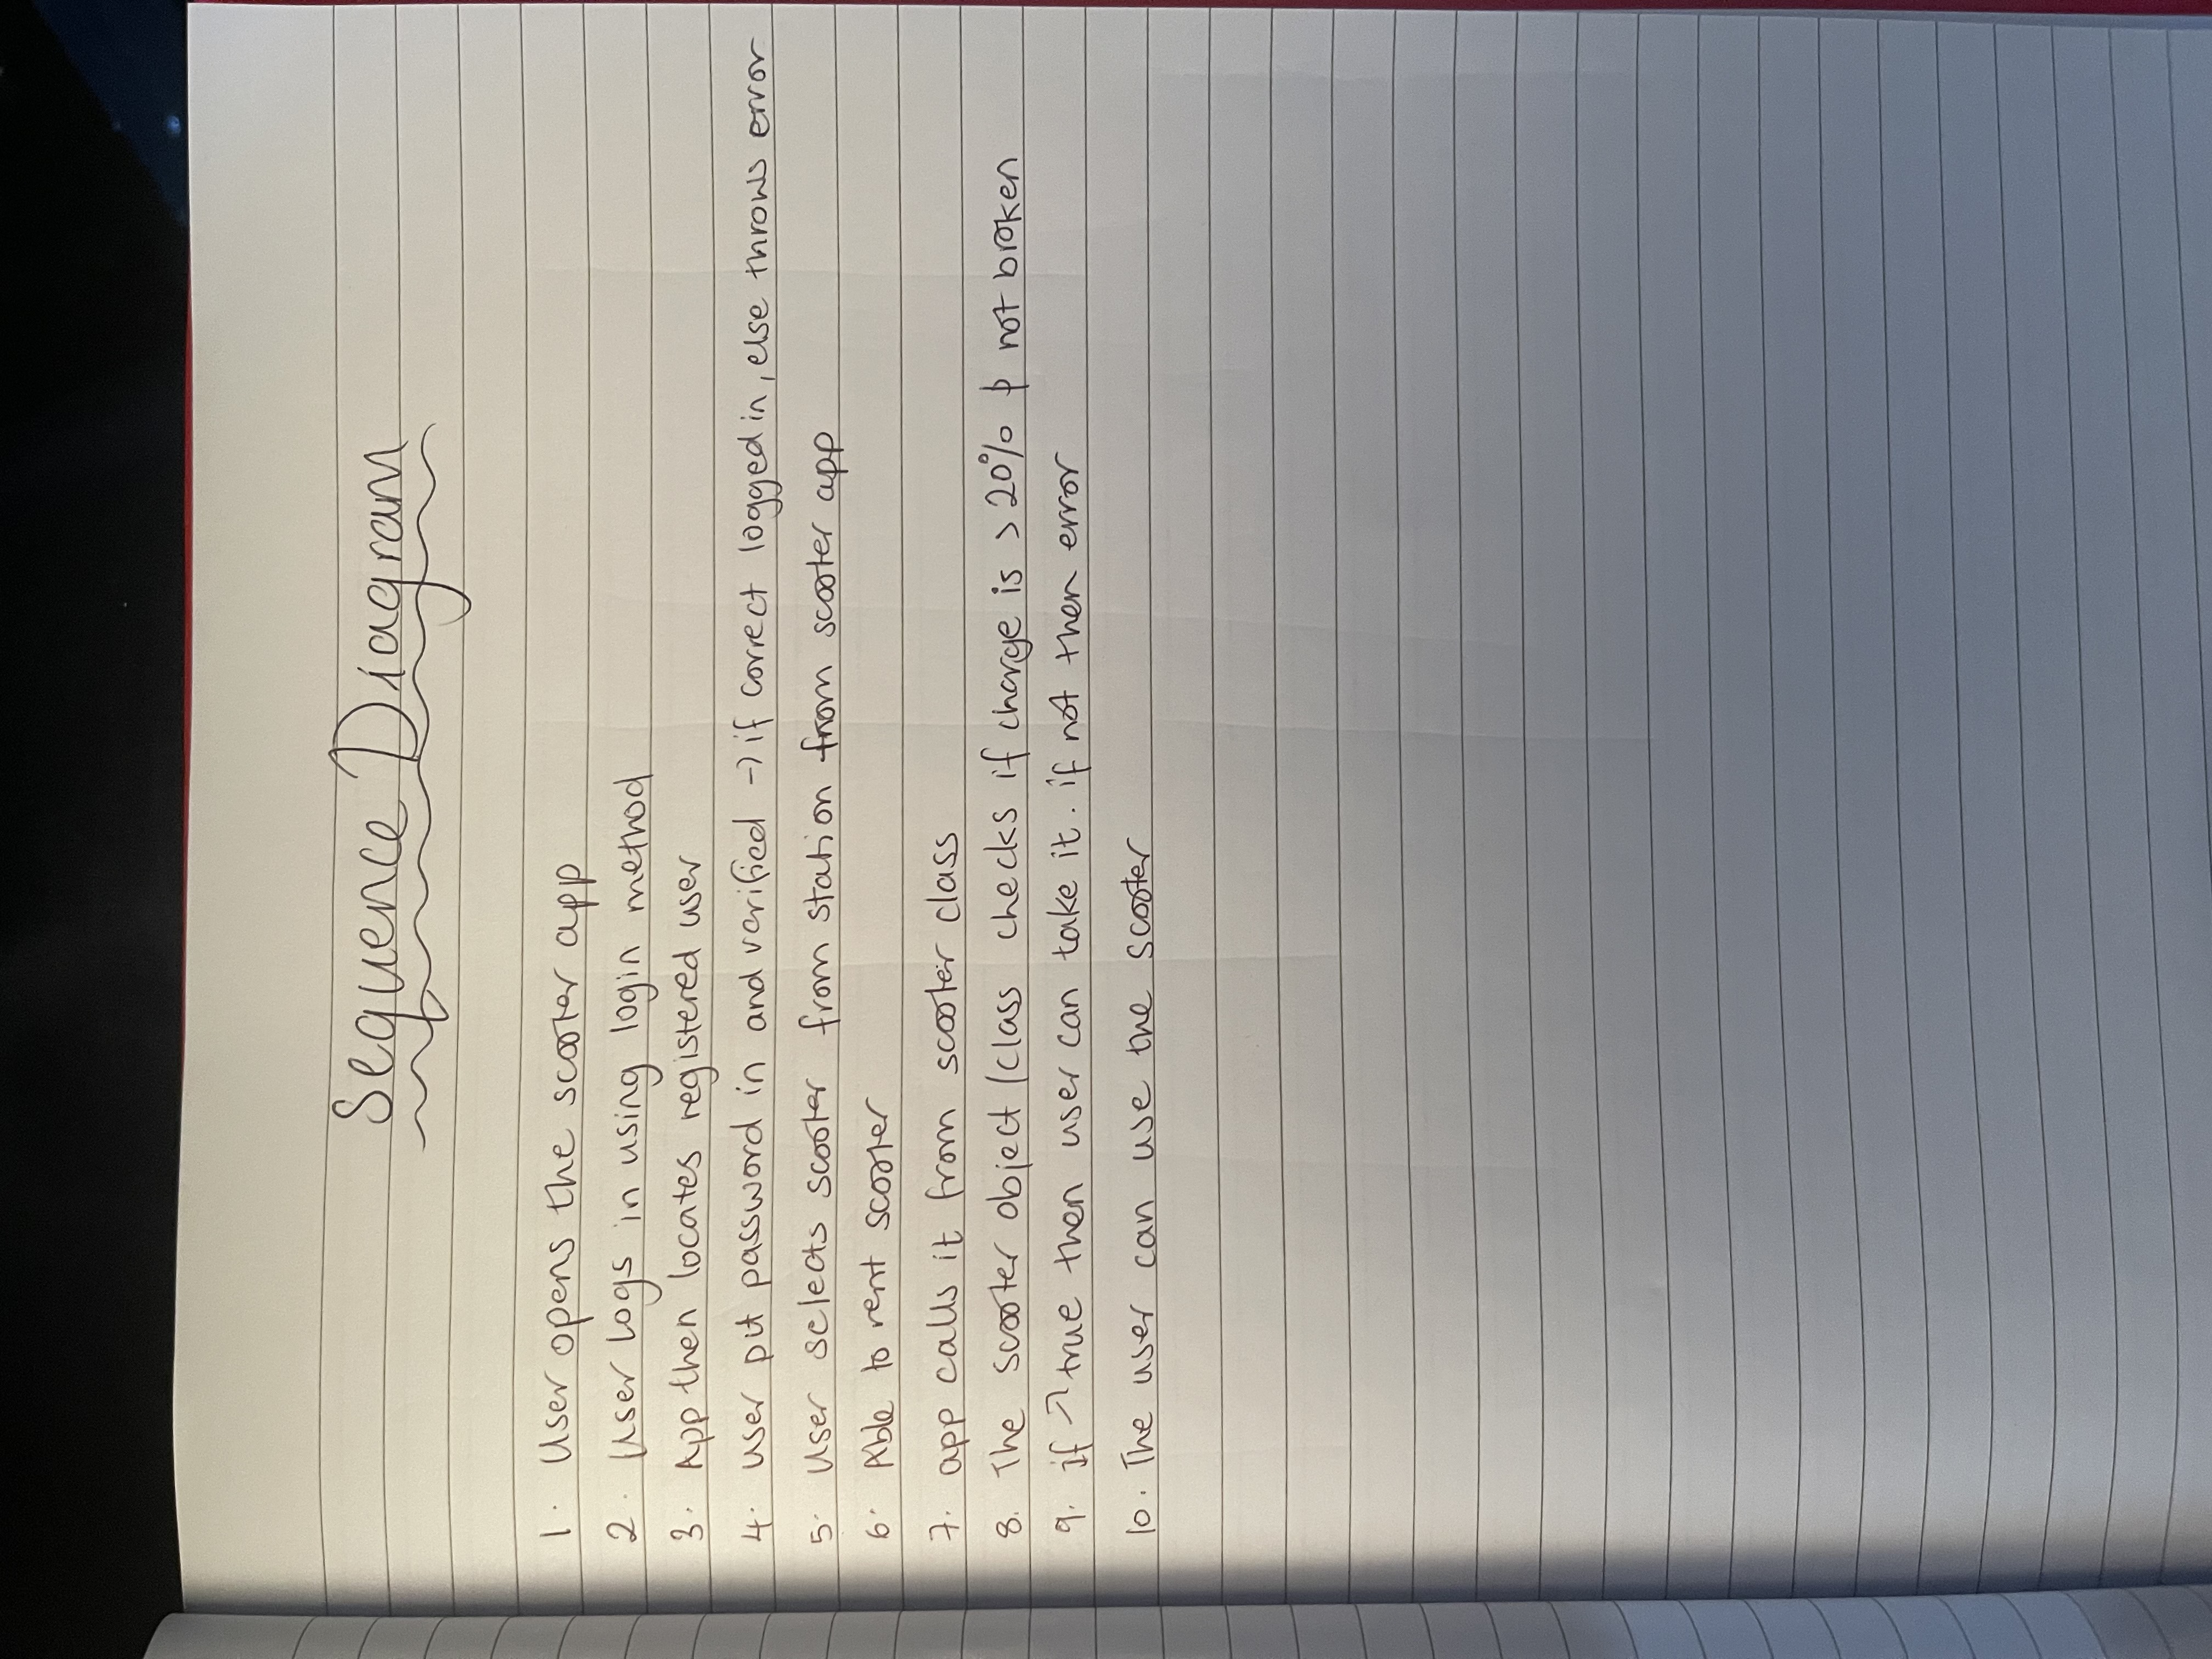 Sequence Diagram
1. User opens the scooter app
2. User logs in using login method
3. App then locates registered user
4. user put password in and verified → if correct logged in, else throws error
5. User selects scooter from station from scooter app
6. Able to rent scooter
7. app calls it from scooter class
8. The scooter object / class checks if charge is > 20% & not broken
9. if ↗ true then user can take it. if not then error
10. The user can use the scooter